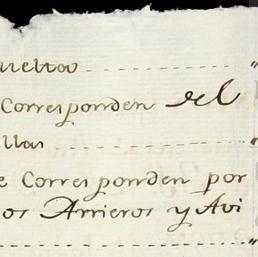 uelta
Corresponden del
llas
e Corresponden por
os Arrieros y Avi